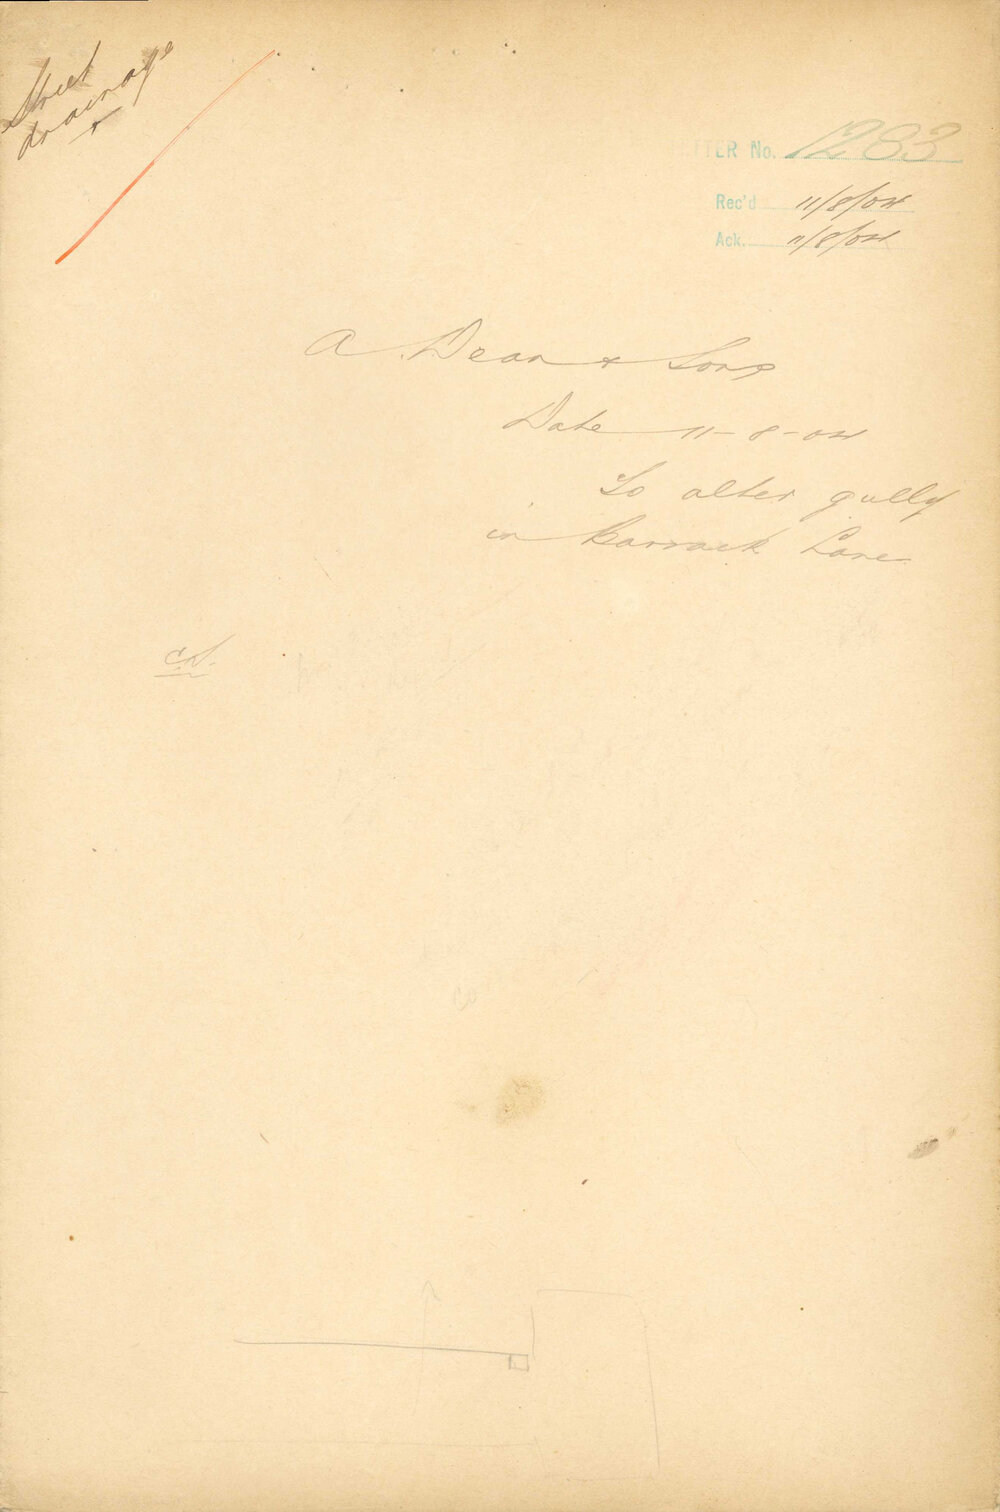 Street
drainage
LETTER No. 1283
Rec'd 11/8/04
Ack. 11/8/04
A Dean & Sons
Date 11-8-04
To alter gully
in Barrack Lane